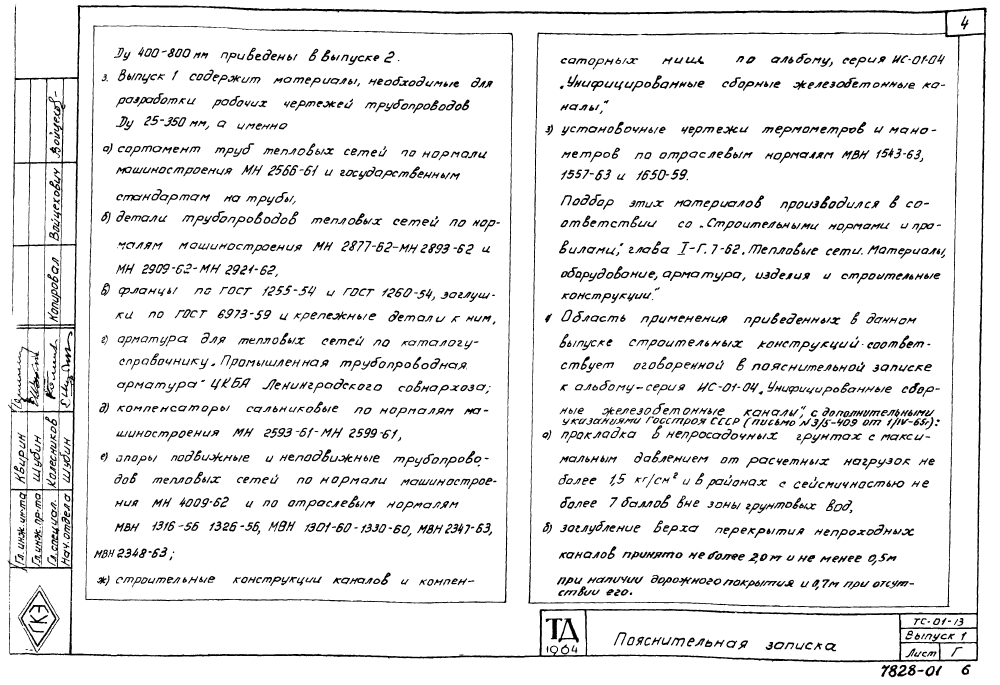 4
Ду 400-800 мм приведены в Выпуске 2.
3. Выпуск 1 содержит материалы, необходимые для
разработки рабочих чертежей трубопроводов
Ду 25-350 мм, а именно
а) сортамент труб тепловых сетей по нормали
машиностроения МН 2566-61 и государственным
стандартам на трубы,
б) детали трубопроводов тепловых сетей по нор-
малям машиностроения МН 2877-62-МН 2893-62 и
МН 2909-62-МН 2921-62,
в) фланцы по ГОСТ 1255-54 и ГОСТ 1260-54, заглуш-
ки по ГОСТ 6973-59 и крепежные детали к ним,
г) арматура для тепловых сетей по каталогу-
справочнику „Промышленная трубопроводная
арматура" ЦКБА Ленинградского совнархоза;
д) компенсаторы сальниковые по нормалям ма-
шиностроения МН 2593-61-МН 2599-61,
е) опоры подвижные и неподвижные трубопрово-
дов тепловых сетей по нормали машинострое-
ния МН 4009-62 и по отраслевым нормалям
МВН 1316-56 1326-56, МВН 1301-60-1330-60, МВН 2347-63,
МВН 2348-63;
ж) строительные конструкции каналов и компен-
саторных ниш по альбому, серия ИС-01-04
„Унифицированные сборные железобетонные ка-
налы",
з) установочные чертежи термометров и мано-
метров по отраслевым нормалям МВН 1543-63,
1557-63 и 1650-59.
Подбор этих материалов производился в со-
ответствии со „Строительными нормами и пра-
вилами", глава I-Г. 7-62. Тепловые сети. Материалы,
оборудование, арматура, изделия и строительные
конструкции."
4 Область применения приведенных в данном
выпуске строительных конструкций соответ-
ствует оговоренной в пояснительной записке
к альбому-серия ИС-01-04 „Унифицированные сбор-
ные железобетонные каналы", с дополнительными
указаниями Госстроя СССР (письмо №3/5-409 от 1/IV-65г):
а) прокладка в непросадочных грунтах с макси-
мальным давлением от расчетных нагрузок не
более 1,5 кг/см² и в районах с сейсмичностью не
более 7 баллов вне зоны грунтовых вод,
б) заглубление верха перекрытия непроходных
каналов принято не более 2,0 м и не менее 0,5м
при наличии дорожного покрытия и 0,7 м при отсут-
ствии его.
Гл. инж. ин-та Квирин
Гл. инж. пр-та Шубин
Гл. специал. Колесников
Нач. отдела Шубин
Копировал Войцехович
ГКЭ
ТД
1964
Пояснительная записка
ТС-01-13
Выпуск 1
Лист Г
7828-01 6